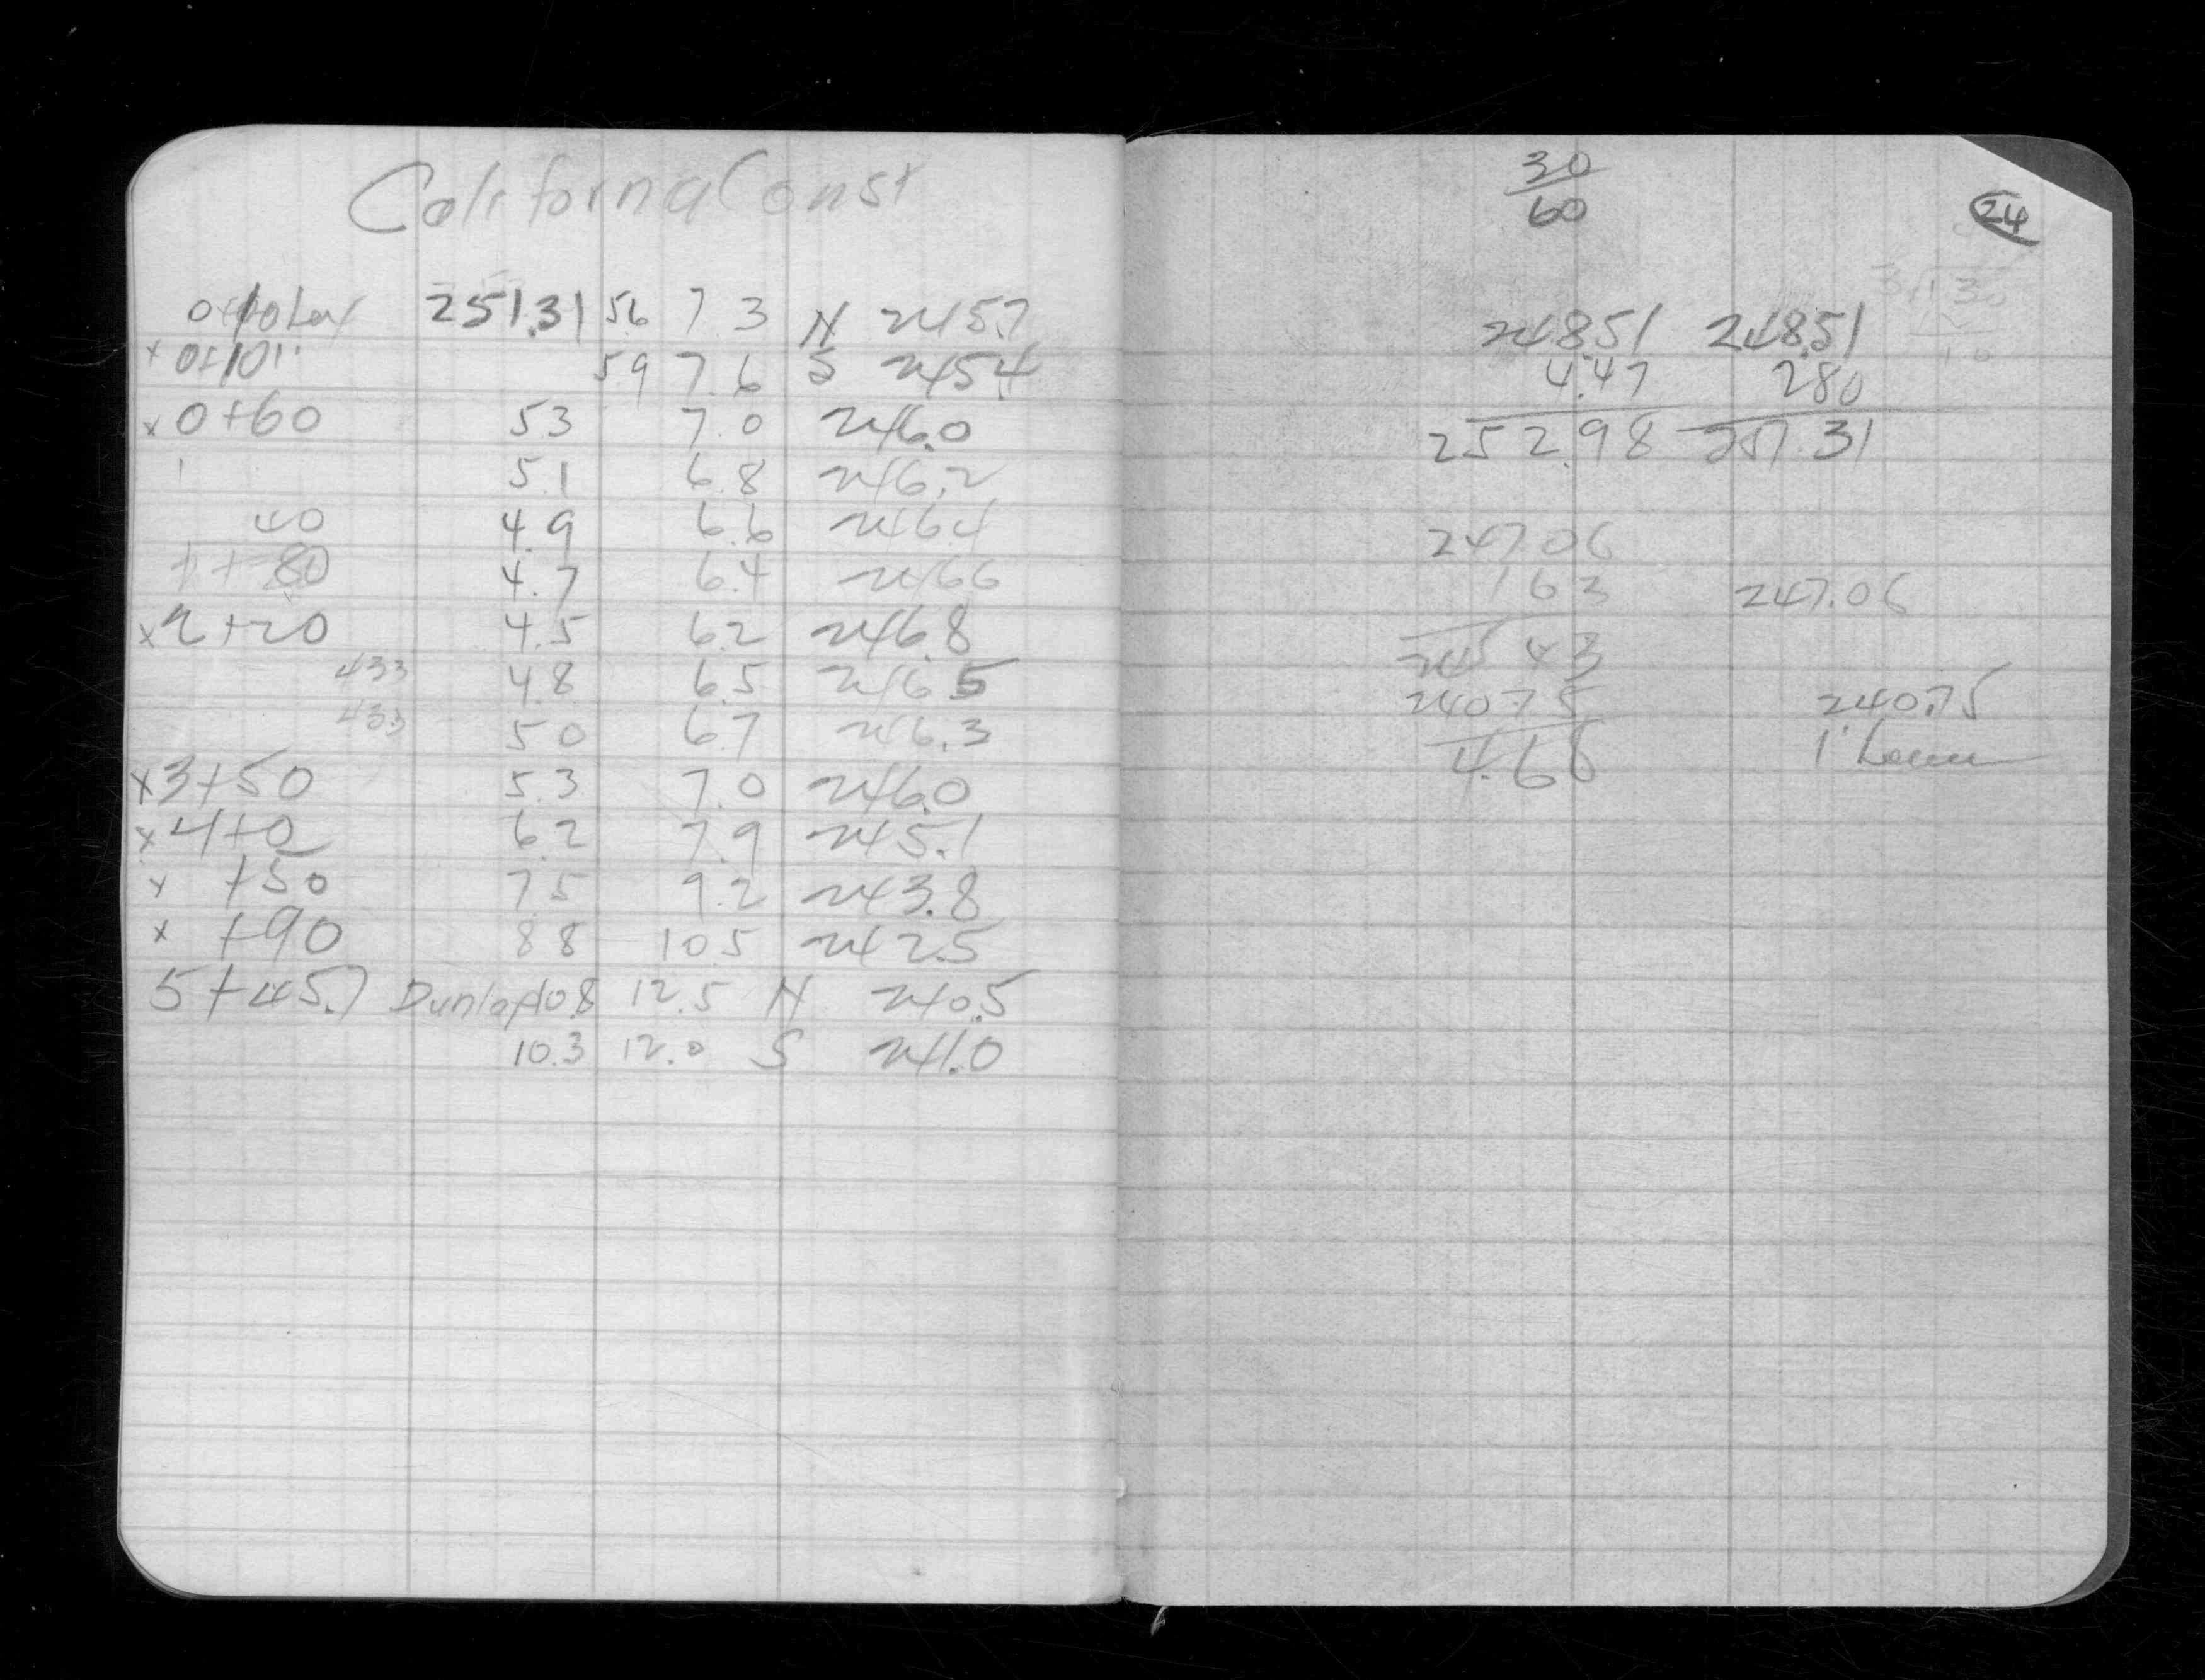 California Const
251.31 5.6 7.3 N 245.7
x 0+10 5.9 7.6 S 245.4
x 0+60 5.3 7.0 246.0
1 5.1 6.8 246.2
40 4.9 6.6 246.4
1+80 4.7 6.4 246.6
x 2+20 4.5 6.2 246.8
433 4.8 6.5 246.5
433 5.0 6.7 246.3
x 3+50 5.3 7.0 246.0
x 4+0 6.2 7.9 245.1
x +50 7.5 9.2 243.8
x +90 8.8 10.5 242.5
5+45.7 Dunlap 10.8 12.5 N 240.5
10.3 12.0 S 241.0
30
60
24
248.51 248.51
4.47 280
252.98 251.31
247.06
163 247.06
245 43
240 75 240.75
4.68 1'